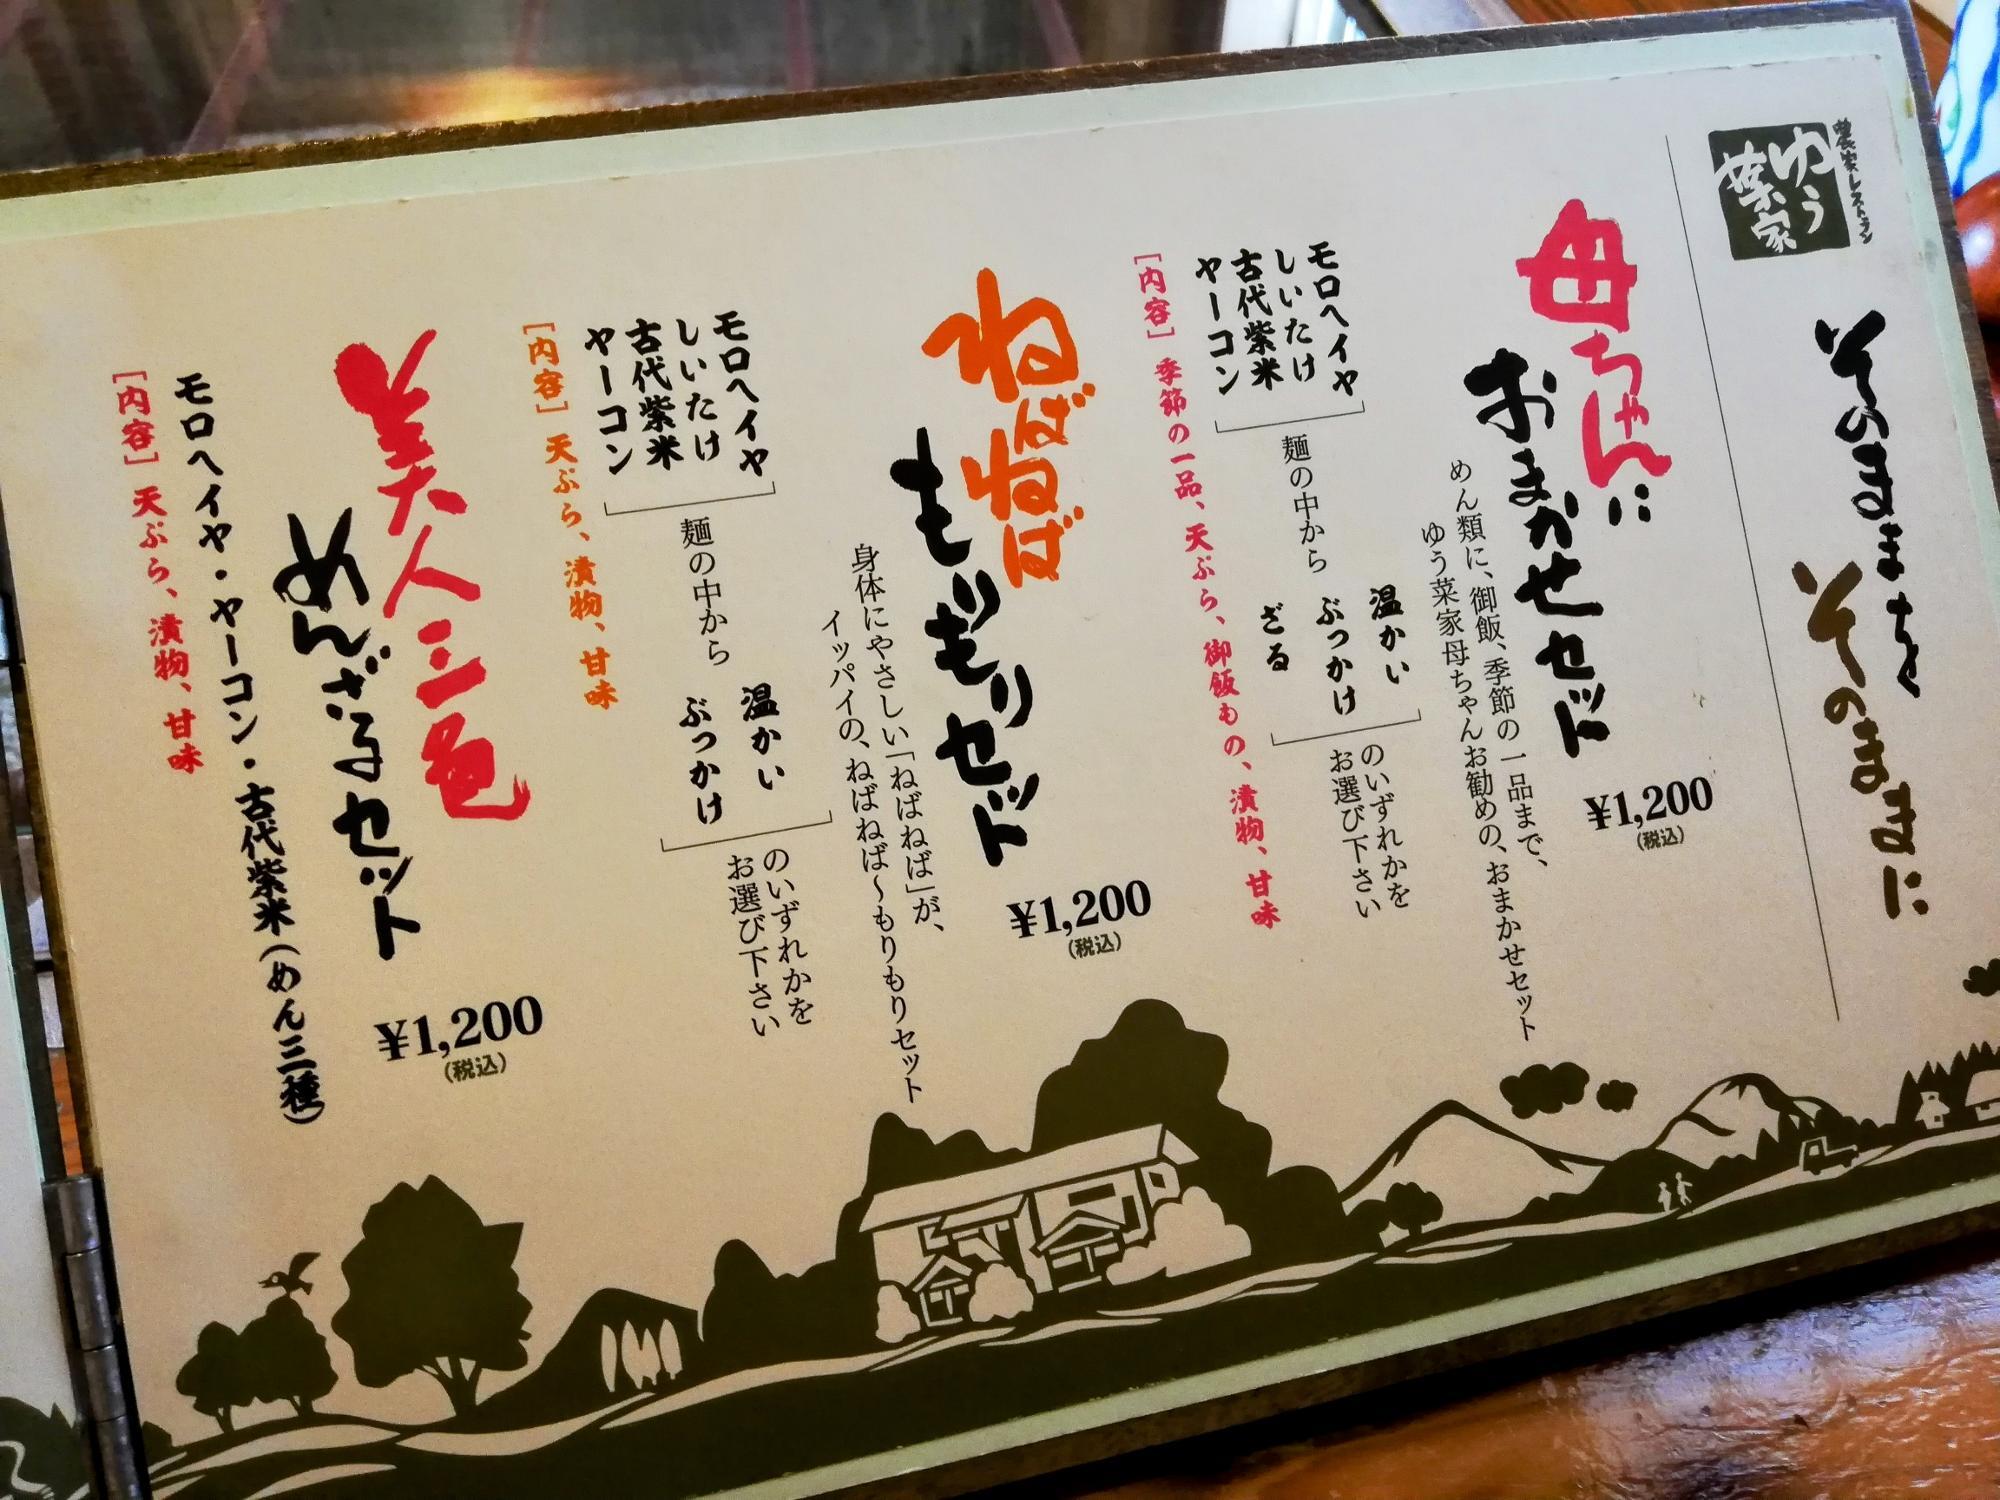 農家レストラン
ゆう
菜家
そのままを
そのままに
母ちゃんに
おまかせセット
¥1,200
(税込)
めん類に、御飯、季節の一品まで、
ゆう菜家母ちゃんお勧めの、おまかせセット
モロヘイヤ
しいたけ
古代紫米
ヤーコン
麺の中から
温かい
ぶっかけ
ざる
のいずれかを
お選び下さい
[内容] 季節の一品、天ぷら、御飯もの、漬物、甘味
ねばねば
もりもりセット
¥1,200
(税込)
身体にやさしい「ねばねば」が、
イッパイの、ねばねば〜もりもりセット
モロヘイヤ
しいたけ
古代紫米
ヤーコン
麺の中から
温かい
ぶっかけ
のいずれかを
お選び下さい
[内容] 天ぷら、漬物、甘味
美人三色
めんざるセット
¥1,200
(税込)
モロヘイヤ・ヤーコン・古代紫米(めん三種)
[内容] 天ぷら、漬物、甘味